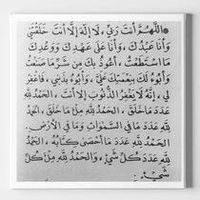 اَللّٰهُمَّ أَنْتَ رَبِّيْ، لَا إِلٰهَ إِلَّا أَنْتَ خَلَقْتَنِيْ
وَأَنَا عَبْدُكَ، وَأَنَا عَلَى عَهْدِكَ وَوَعْدِكَ
مَا اسْتَطَعْتُ، أَعُوْذُ بِكَ مِنْ شَرِّ مَا صَنَعْتُ
وَأَبُوْءُ لَكَ بِنِعْمَتِكَ عَلَيَّ، وَأَبُوْءُ بِذَنْبِيْ، فَاغْفِرْ
لِيْ، إِنَّهُ لَا يَغْفِرُ الذُّنُوْبَ إِلَّا أَنْتَ، الْحَمْدُ لِلّٰهِ
عَدَدَ مَا خَلَقَ، الْحَمْدُ لِلّٰهِ مِلْءَ مَا خَلَقَ، الْحَمْدُ
لِلّٰهِ عَدَدَ مَا فِي السَّمٰوَاتِ وَمَا فِي الْأَرْضِ.
الْحَمْدُ لِلّٰهِ عَدَدَ مَا أَحْصَى كِتَابُهُ، الْحَمْدُ
لِلّٰهِ عَدَدَ كُلِّ شَيْءٍ، وَالْحَمْدُ لِلّٰهِ مِلْءَ كُلِّ
شَيْءٍ